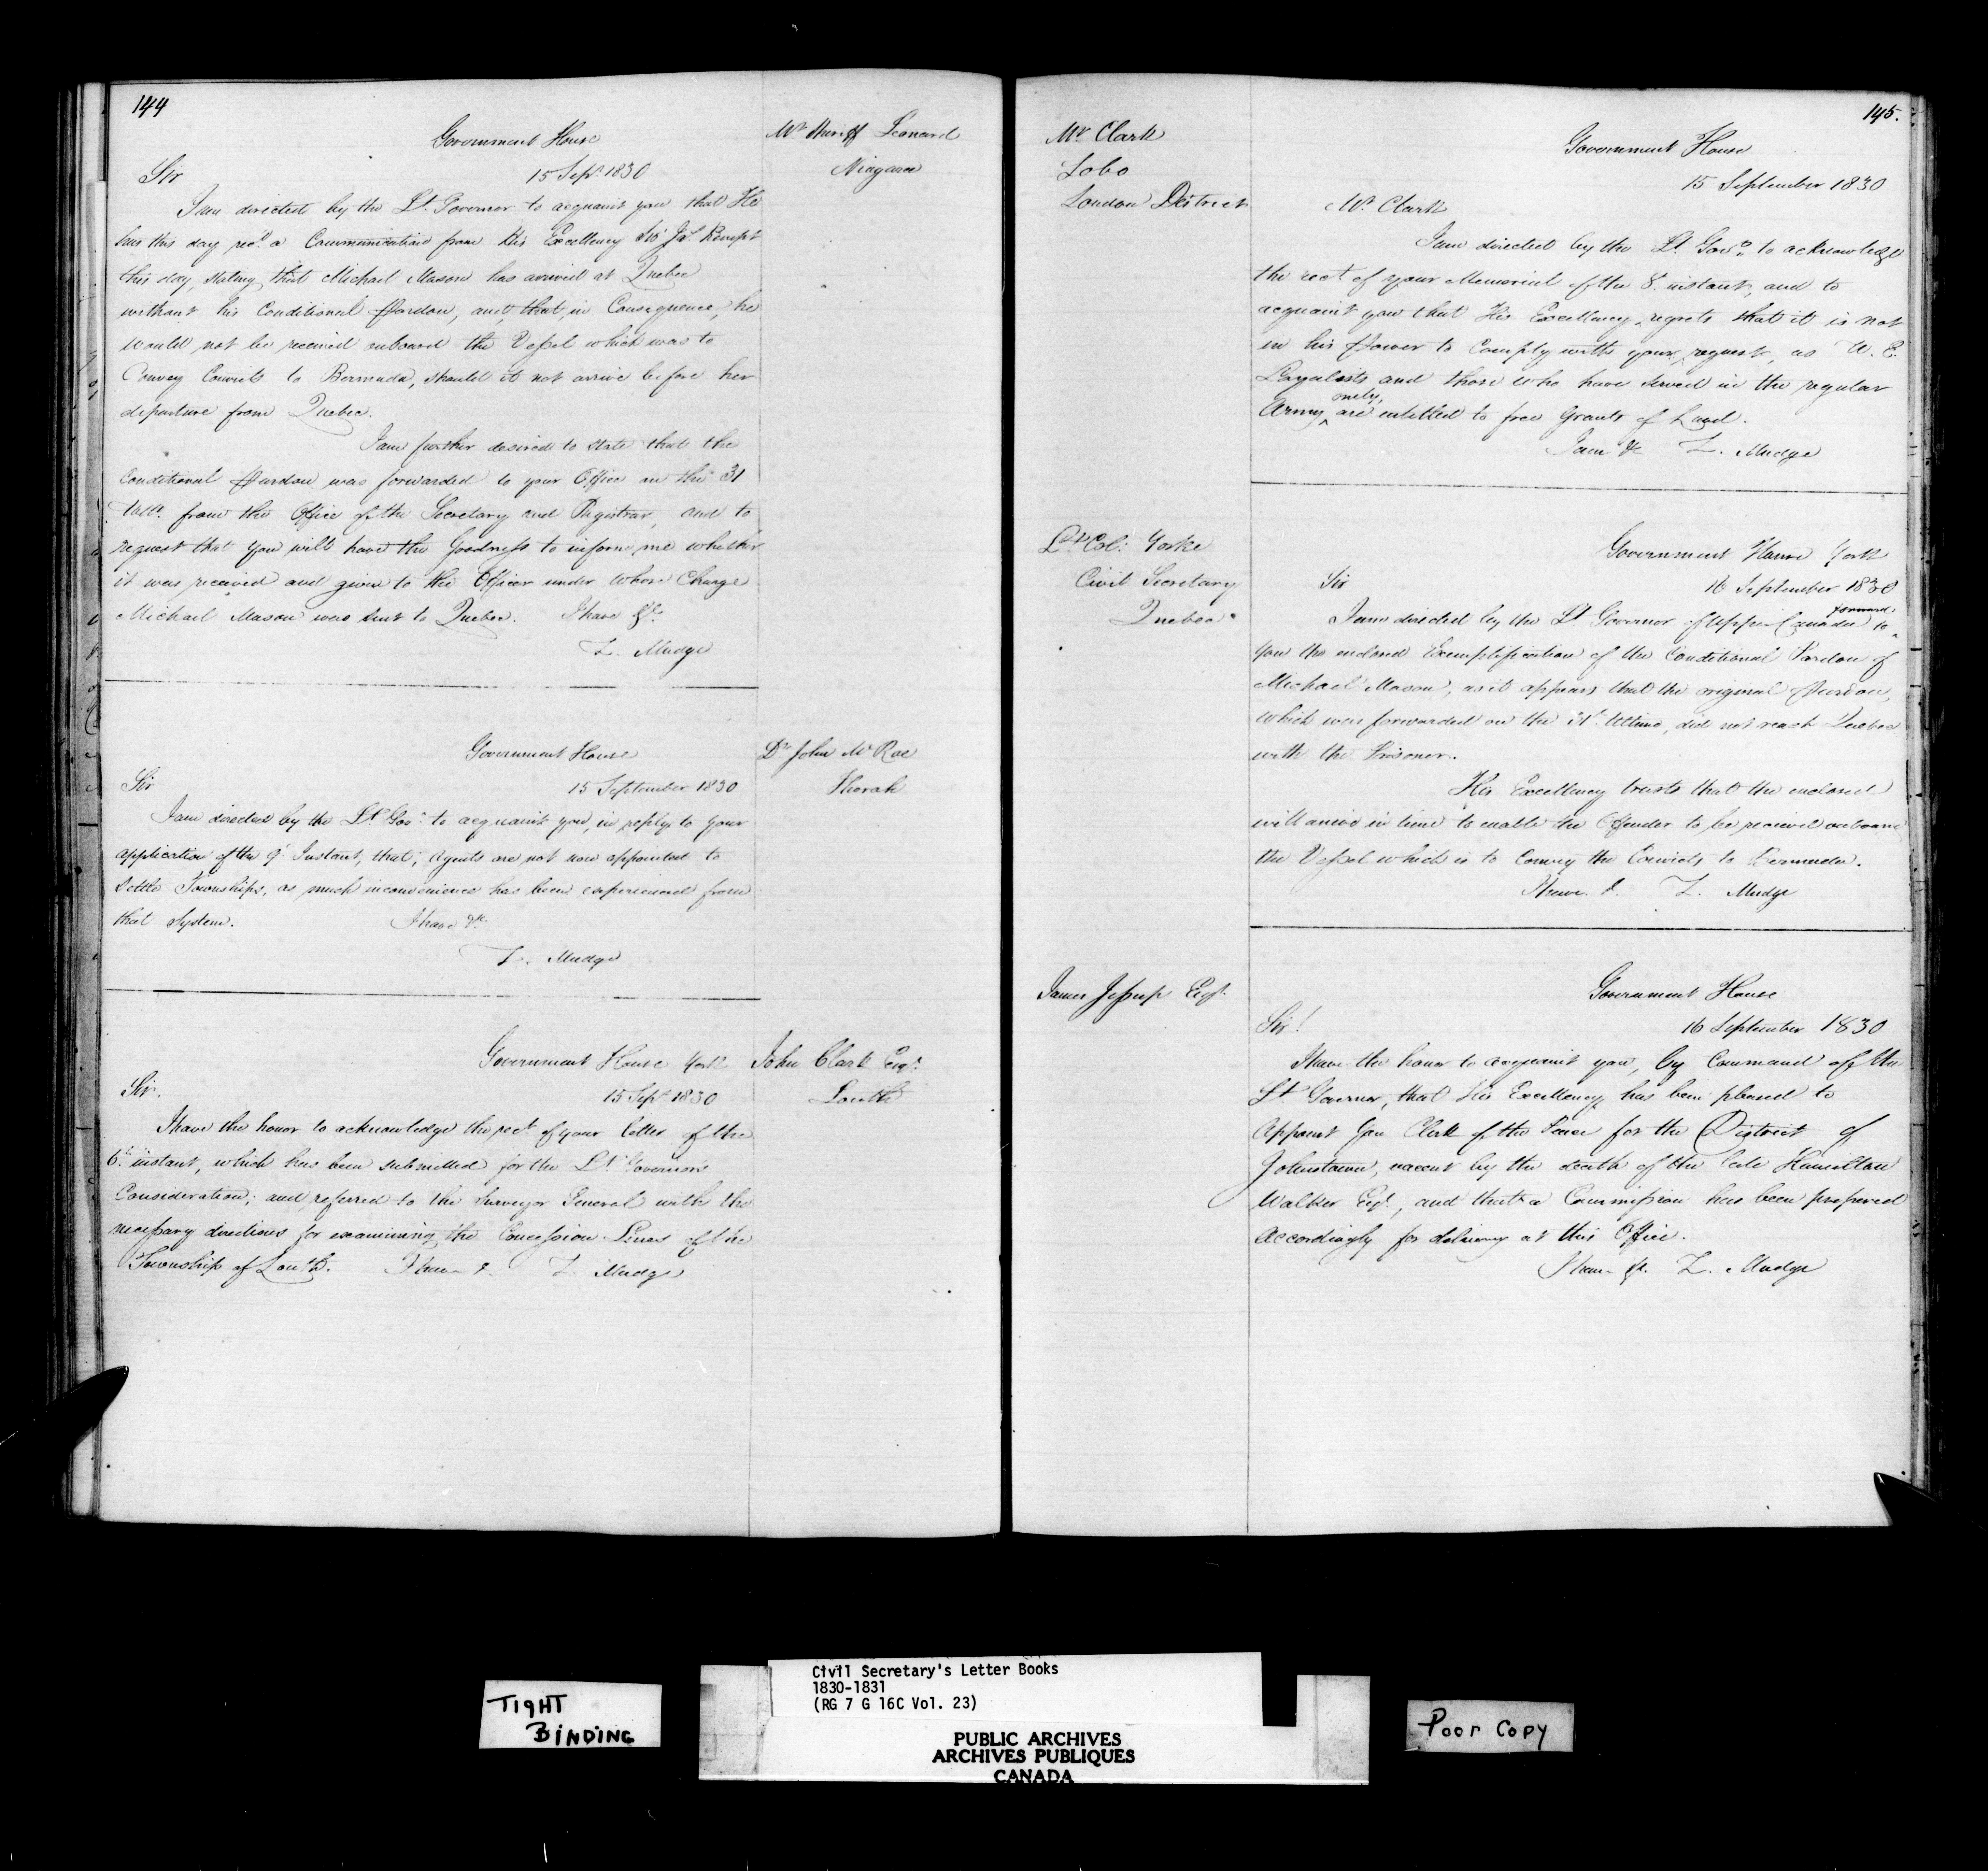 144
Government House
Mr Sheriff Leonard
Niagara
Sir
15 Sept. 1830
I am directed by the Lt. Governor to acquaint you that He
has this day recd. a Communication from His Excellency Sir Jas. Kempt
this day, stating that Michael Mason has arrived at Quebec
without his Conditional Pardon, and, that, in Consequence, he
would not be received onboard the Vessel which was to
Convey Convicts to Bermuda, should it not arrive before her
departure from Quebec.
I am further desired to state that the
Conditional Pardon was forwarded to your Office on the 31
Ulto. from the Office of the Secretary and Registrar, and to
request that you will have the Goodness to inform me whether
it was received and given to the Officer under whose Charge
Michael Mason was sent to Quebec. I have &c.
Z. Mudge
Government House
Dr John McRae
Thorah
Sir
15 September 1830
I am directed by the Lt Govr. to acquaint you, in reply to your
application of the 9 Instant, that; Agents are not now appointed to
Settle Townships, as much inconvenience has been experienced from
that System. I have &c.
Z. Mudge
Government House York
John Clark Esqr.
Louth
Sir.
15 Sept. 1830
I have the honor to acknowledge the rect. of your letter of the
6th. instant, which has been submitted for the Lt Governor's
Consideration; and referred to the Surveyor General with the
necessary directions for examining the Concession Lines of the
Township of Louth. I have &. Z. Mudge
145.
Mr Clark
Lobo
London District
Government House
15 September 1830
Mr. Clark
I am directed by the Lt. Govr. to acknowledge
the rect of your Memorial of the 8. instant, and to
acquaint you that His Excellency regrets that it is not
in his Power to Comply with your request, as U. E.
Loyalists and those who have served in the regular
only,
Army ^ are entitled to free Grants of Land.
I am &c Z. Mudge
Lt. Col: Yorke
Civil Secretary
Quebec
Government House York
16 September 1830
Sir
forward,
I am directed by the Lt Governor of Upper Canada to ^
you the enclosed Exemplification of the Conditional Pardon of
Michael Mason, as it appears that the original Pardon,
which was forwarded on the 31st. Ultimo, did not reach Quebec
with the Prisoner.
His Excellency trusts that the enclosed
will arrive in time to enable the Offender to be received onboard
the Vessel which is to Convey the Convicts to Bermuda.
I have &. Z. Mudge
James Jessup Esqr.
Government House
16 September 1830
Sir!
I have the honor to acquaint you, by Command of the
Lt Governor, that His Excellency has been pleased to
Appoint you Clerk of the Peace for the District of
Johnstown, vacant by the death of the late Hamilton
Walker Esqr., and that a Commission has been prepared
Accordingly for delivery at this Office.
I have &c. Z. Mudge
TIGHT
BINDING
Civil Secretary's Letter Books
1830-1831
(RG 7 G 16C Vol. 23)
PUBLIC ARCHIVES
ARCHIVES PUBLIQUES
CANADA
Poor Copy